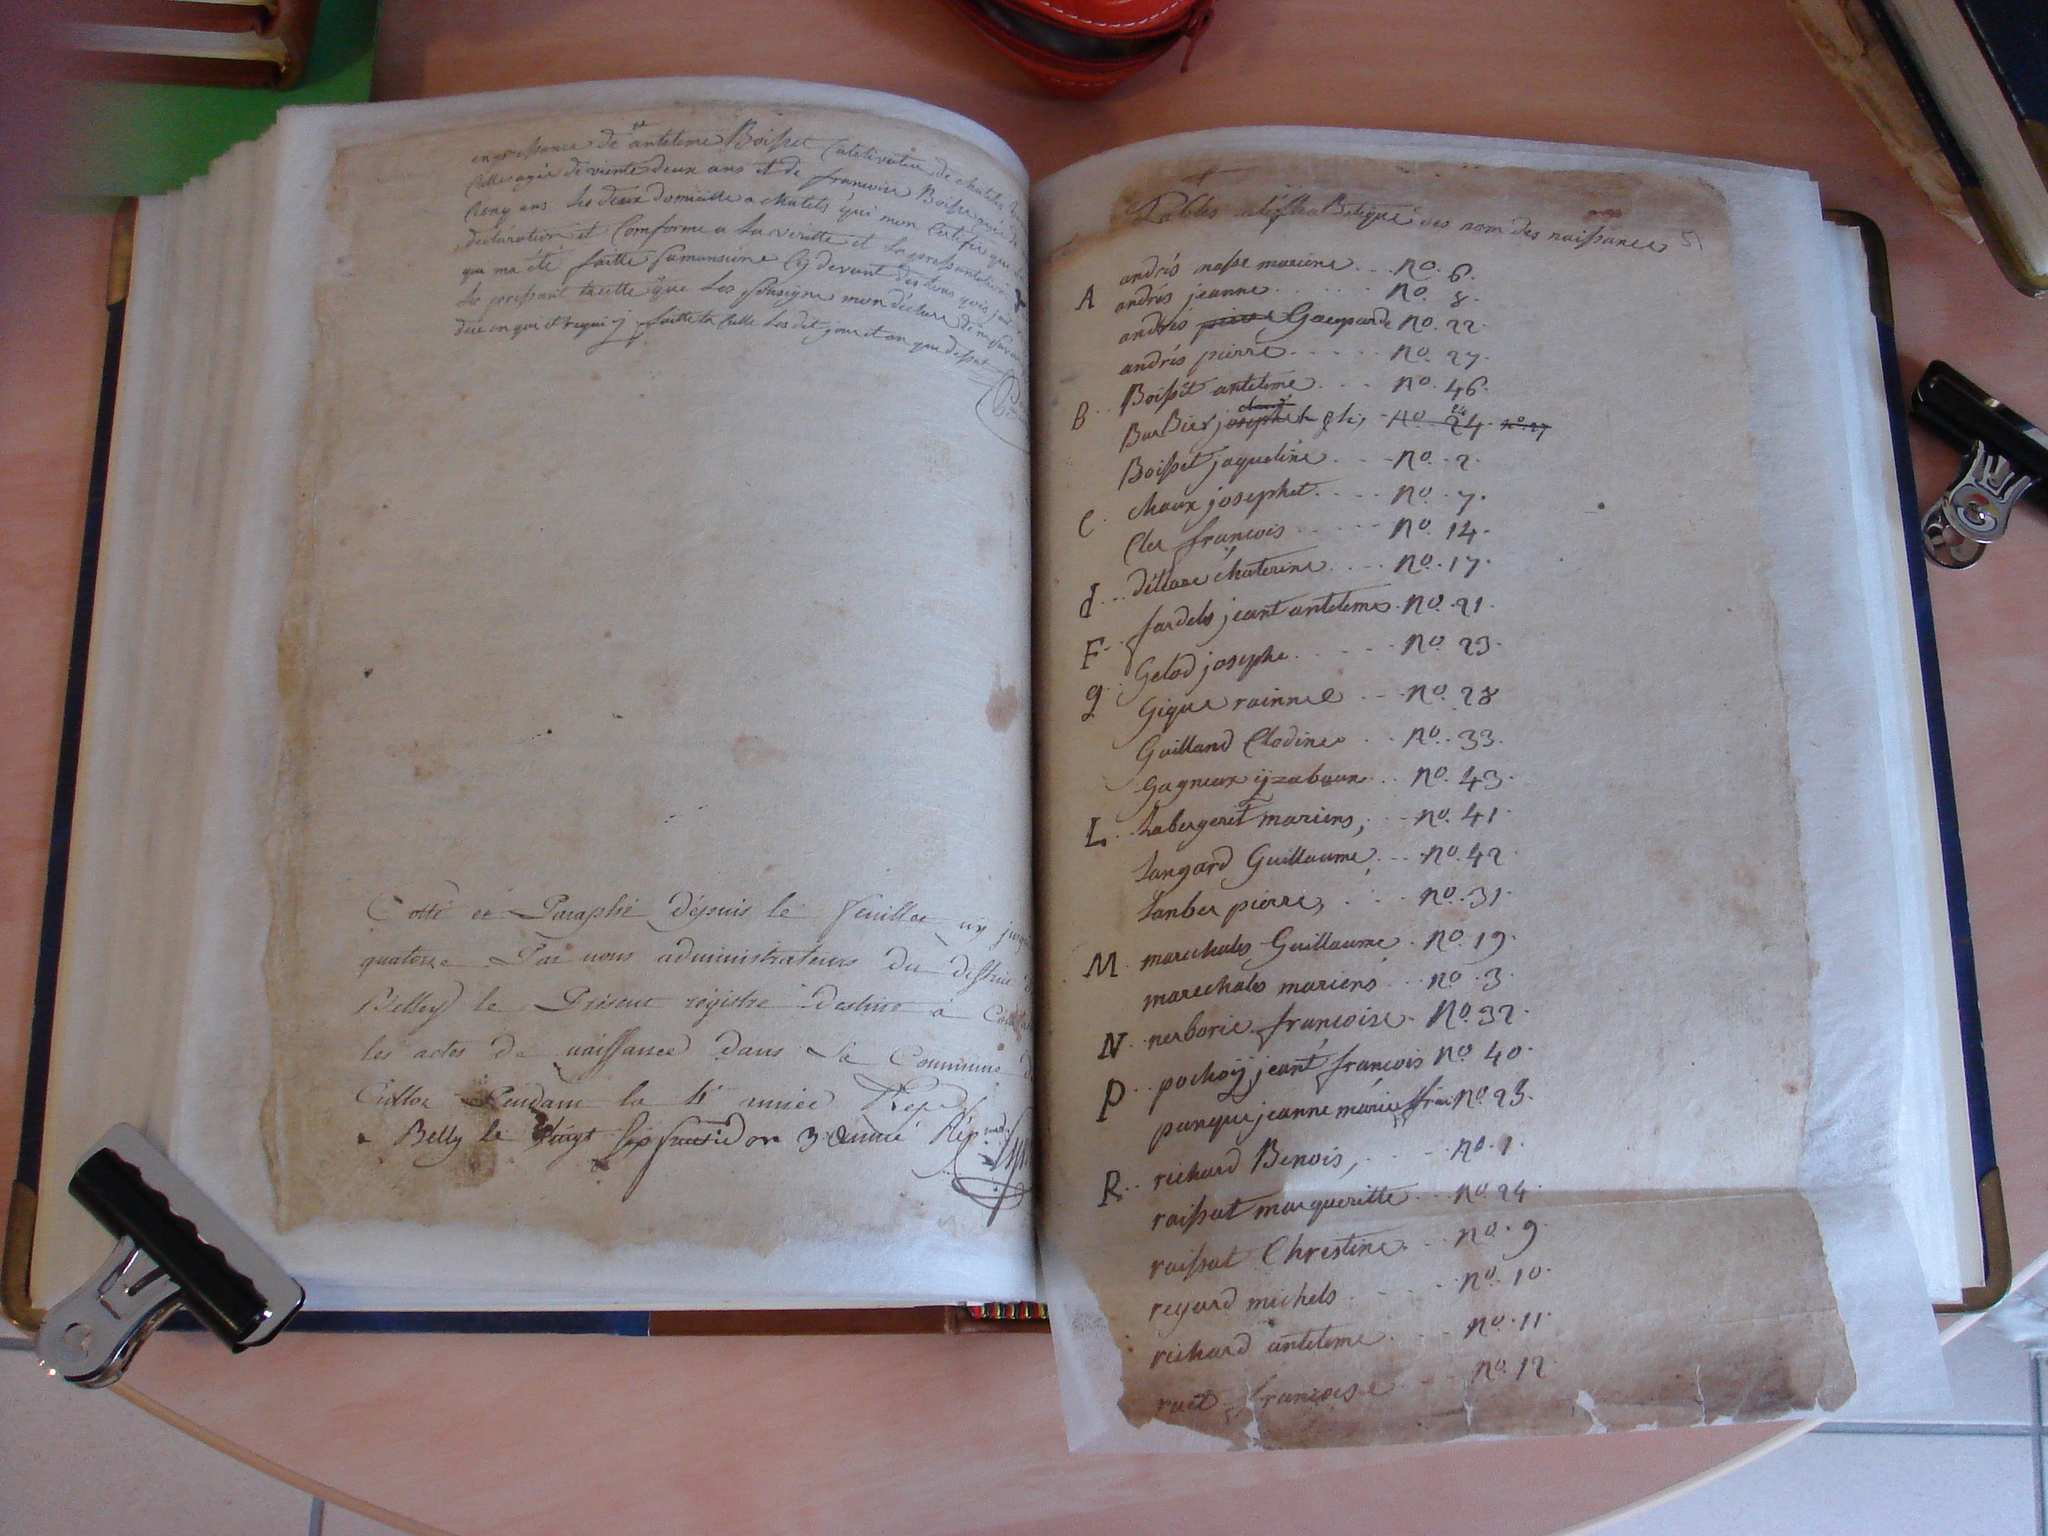 en presance de antelme Boisset Cultivateur de
Culloz agée de viente deux ans et de francoise Boisse agée de
Cenq ans les deux domicille a
declaration et Comforme a la veritte et la presantation
qui ma été faitte
le present que les
due en qui et requi faitte la Culle les dit jour et an que dessut
Cotté et Paraphé depuis le feuillet un
quatorze Par nous administrateurs du district
Belley le Présent régistre destiné à
les actes de naissance dans la Commune de
Culloz Pendant la 4e année Repe
Belly le Vingt Six fructidor 3e année Rép
Tables alfhabetique des nom des naissances 51
A andrés masse mariene No. 6.
andrés jeanne No. 8.
andrés pierre Gaspards No. 22.
andrés pierre No. 27.
B Boisset antelme No. 46.
Barbier joseph No. 24. No. 27
Boisset jaqueline No. 2.
C Chaux josephet No. 7.
Cler francois No. 14.
d dellare chaterine No. 17.
F fardels jeant antelme No. 21.
g Gelod josephe No. 23.
Gigue rainne No. 28
Guilland Clodine No. 33.
Gagneux yzabaux No. 43.
L Labergeret mariens, No. 41
Langard Guillaume, No. 42
Lanber pierre, No. 31.
M marechals Guillaume No. 19.
marechals mariens No. 3.
N nerborie francoise No. 32.
P pochoy jeant francois No. 40.
panque jeanne marie No. 23.
R richard Benois, No. 1.
raissat margueritte No. 24.
raissat Chrestine No. 9.
regard michels No. 10.
richard antelme No. 11.
ruet francoise No. 12